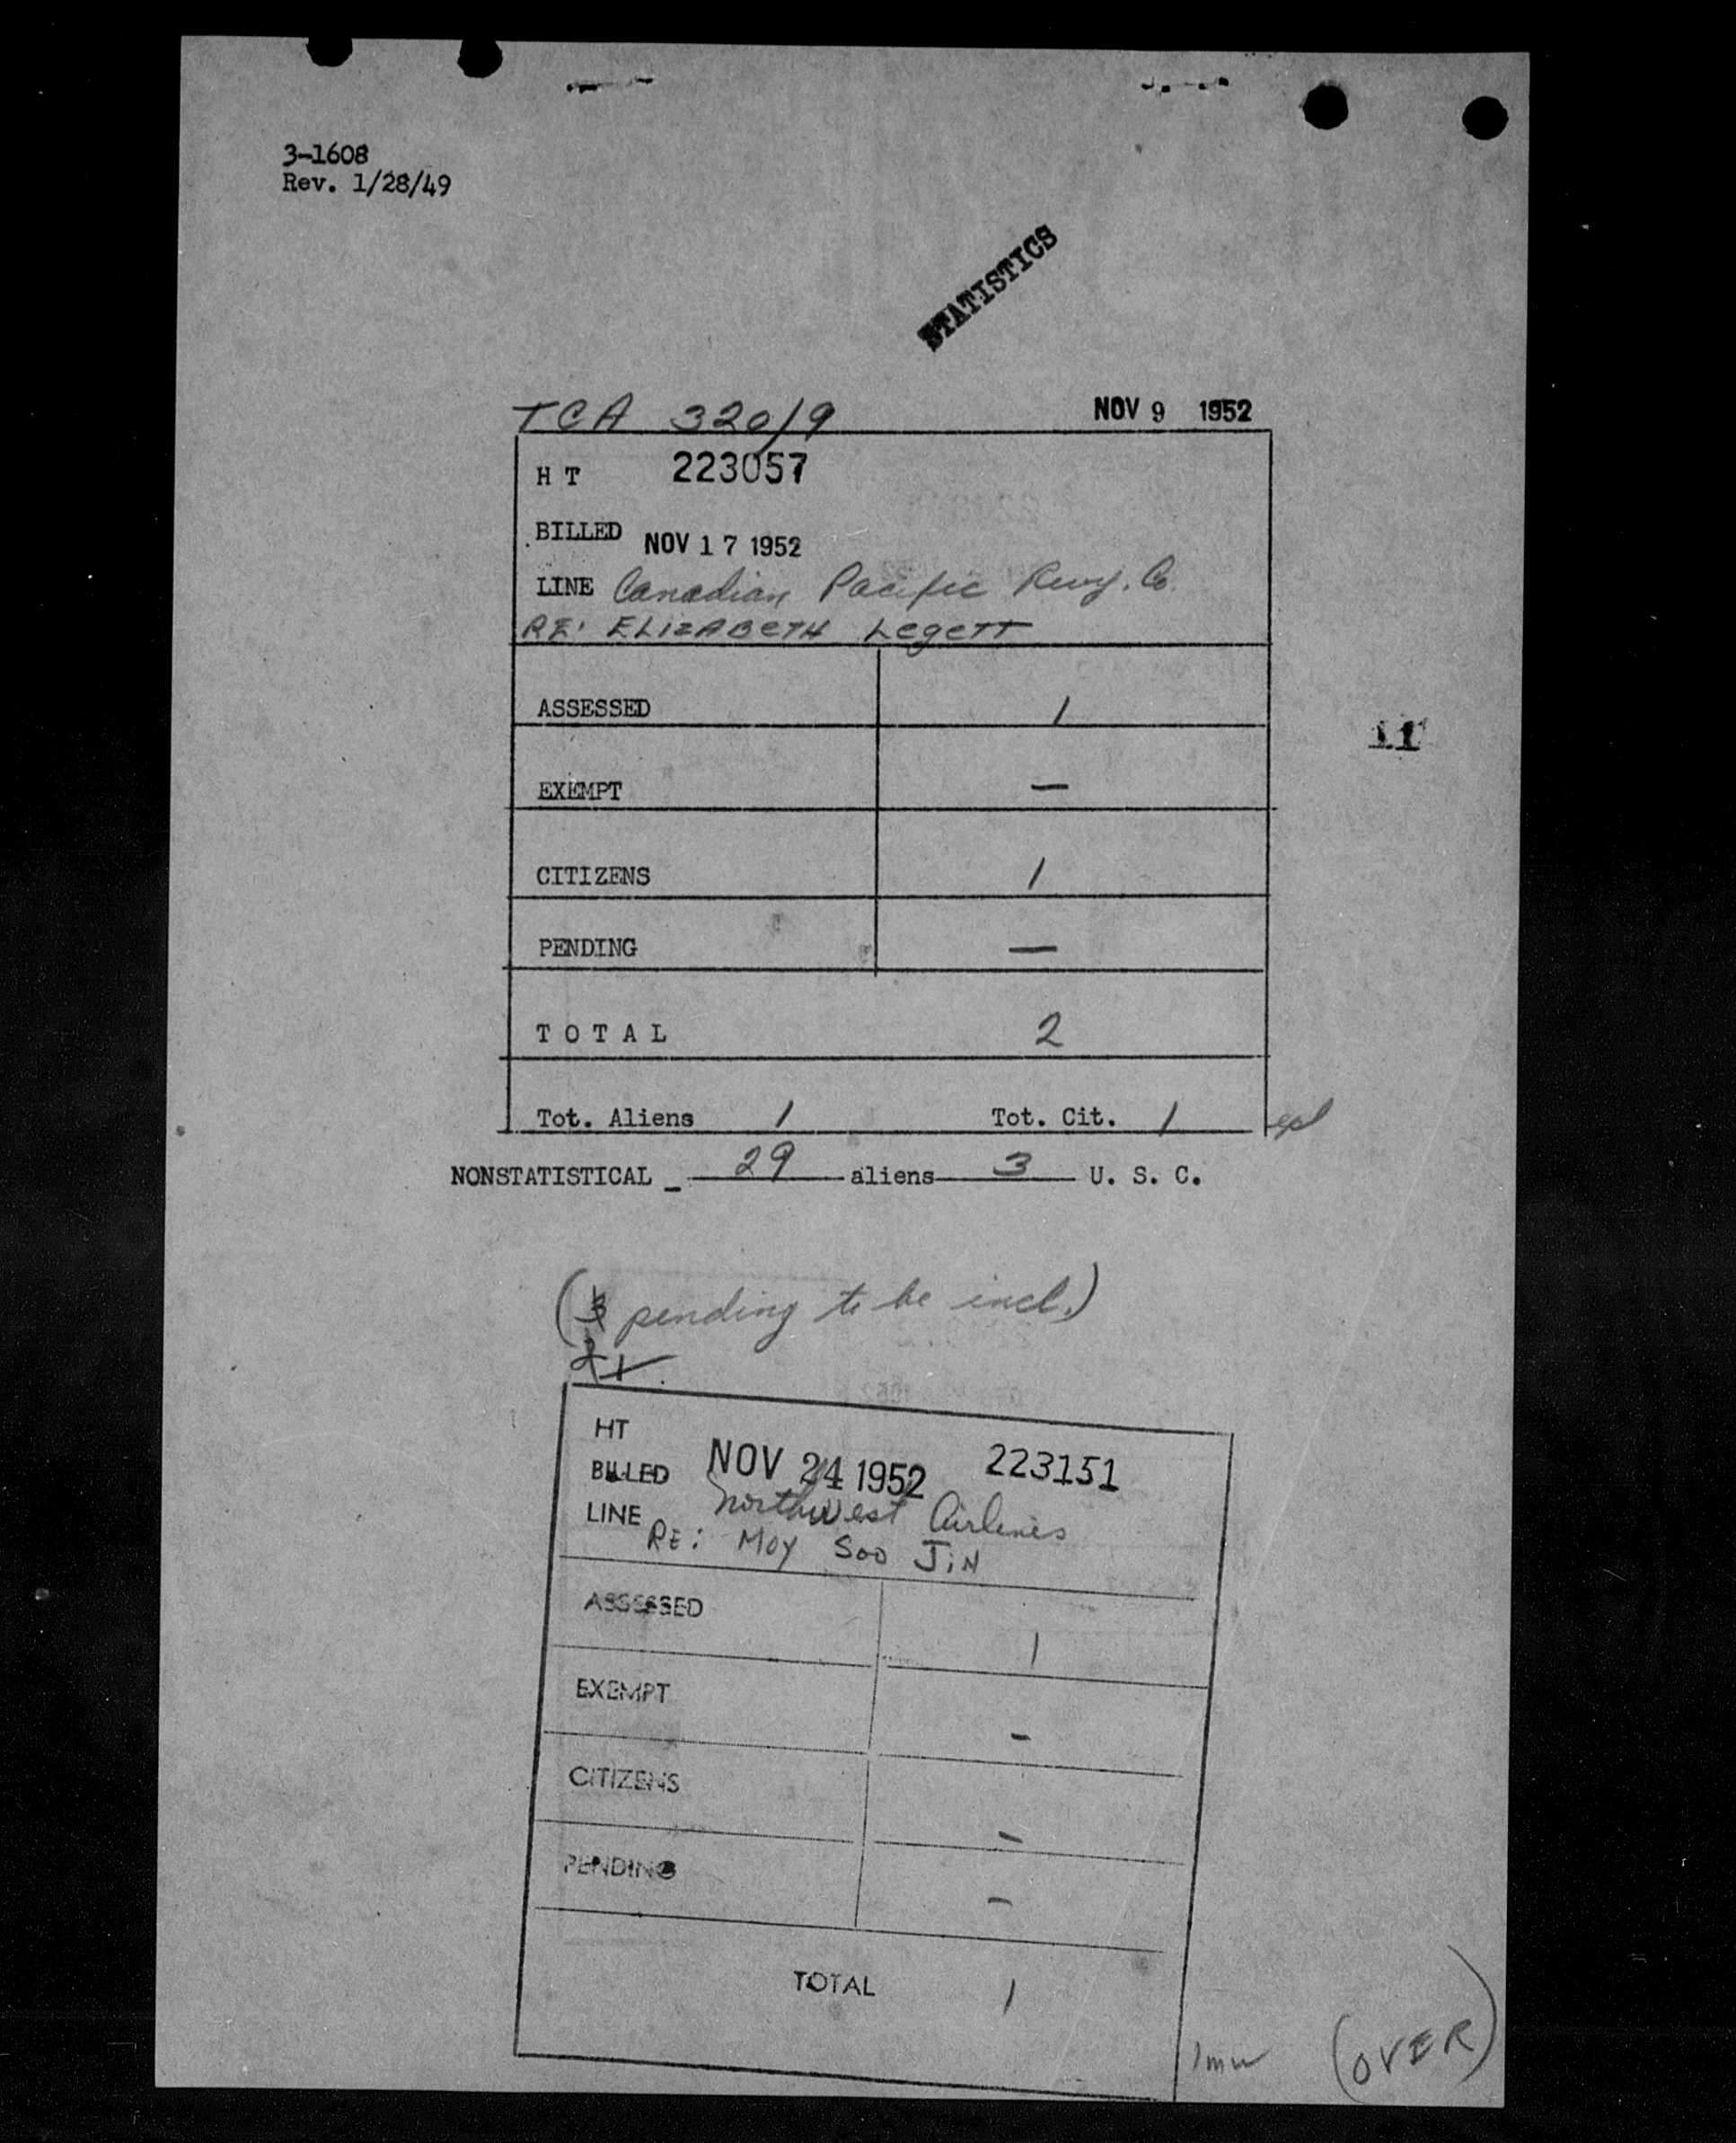 3-1608
Rev. 1/28/49
STATISTICS
TCA 320/9 NOV 9 1952
H T 223057
BILLED NOV 17 1952
LINE Canadian Pacific Rwy. Co.
RE: ELIZABETH LEGETT
ASSESSED 1
11
EXEMPT —
CITIZENS 1
PENDING —
T O T A L 2
Tot. Aliens 1 Tot. Cit. 1
NONSTATISTICAL - 29 aliens 3 U. S. C.
(3 pending to be incl.)
HT
BILLED NOV 24 1952 223151
LINE Northwest Airlines
RE: MOY SOO JIN
ASSESSED 1
EXEMPT -
CITIZENS -
PENDING -
TOTAL 1
(OVER)